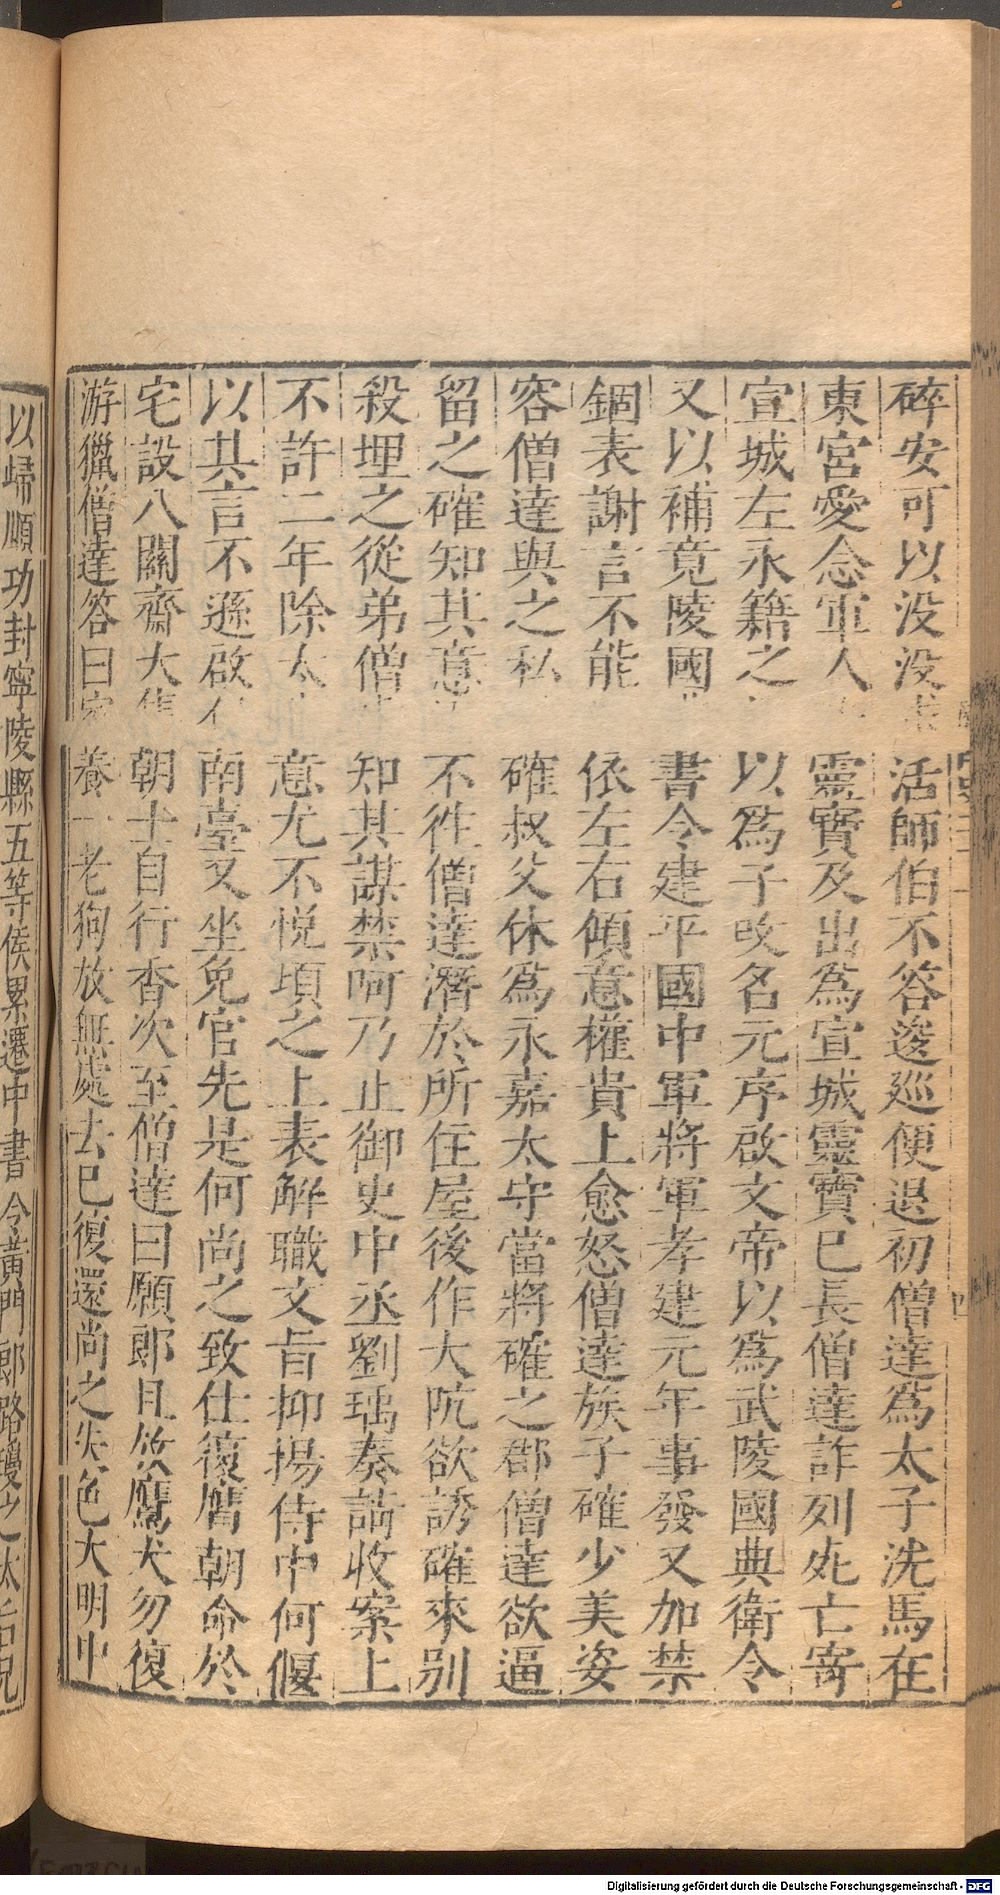 碎安可以没没活師伯不答逡巡便退初僧達為太子洗馬在
東宮愛念軍人靈寶及出為宣城靈寶已長僧達詐列死亡寄
宣城左永籍之以為子改名元序啟文帝以為武陵國典衛令
又以補竟陵國書令建平國中軍將軍孝建元年事發又加禁
錮表謝言不能依左右傾意權貴上愈怒僧達族子確少美姿
容僧達與之私確叔父休為永嘉太守當將確之郡僧達欲逼
留之確知其意不徃僧達潛於所住屋後作大阬欲誘確來别
殺埋之從弟僧知其謀禁呵乃止御史中丞劉瑀奏請收案上
不許二年除太意尤不悦頃之上表解職文旨抑揚侍中何偃
以其言不遜啟南臺又坐免官先是何尚之致仕復膺朝命於
宅設八關齋大朝士自行香次至僧達曰願郎且放鷹犬勿復
游獵僧達答曰家養一老狗放無處去已復還尚之失色大明中
以歸順功封寧陵縣五等侯累遷中書令黃門郎路瓊之太后兄
Digitalisierung gefördert durch die Deutsche Forschungsgemeinschaft - DFG